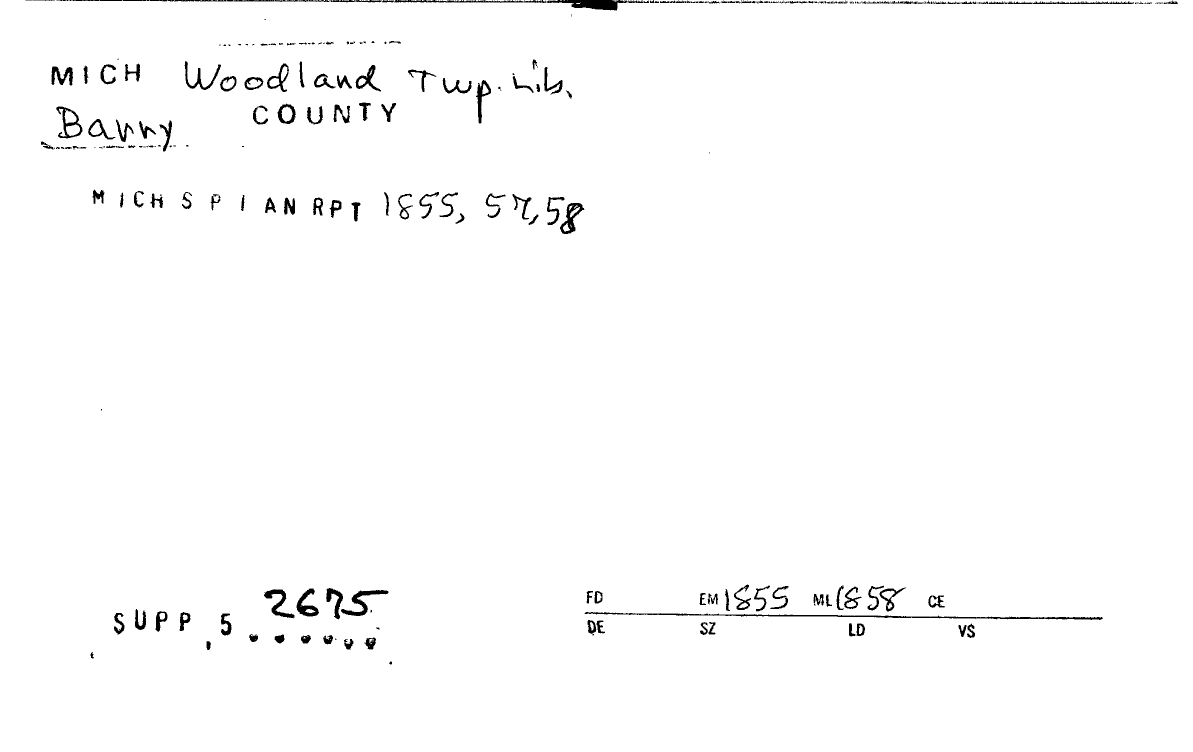 MICH Woodland Twp. Lib.
Barry COUNTY
MICH S P I AN RPT 1855, 57, 58
SUPP, 5 2675
FD EM 1855 ML 1858 CE
DE SZ LD VS